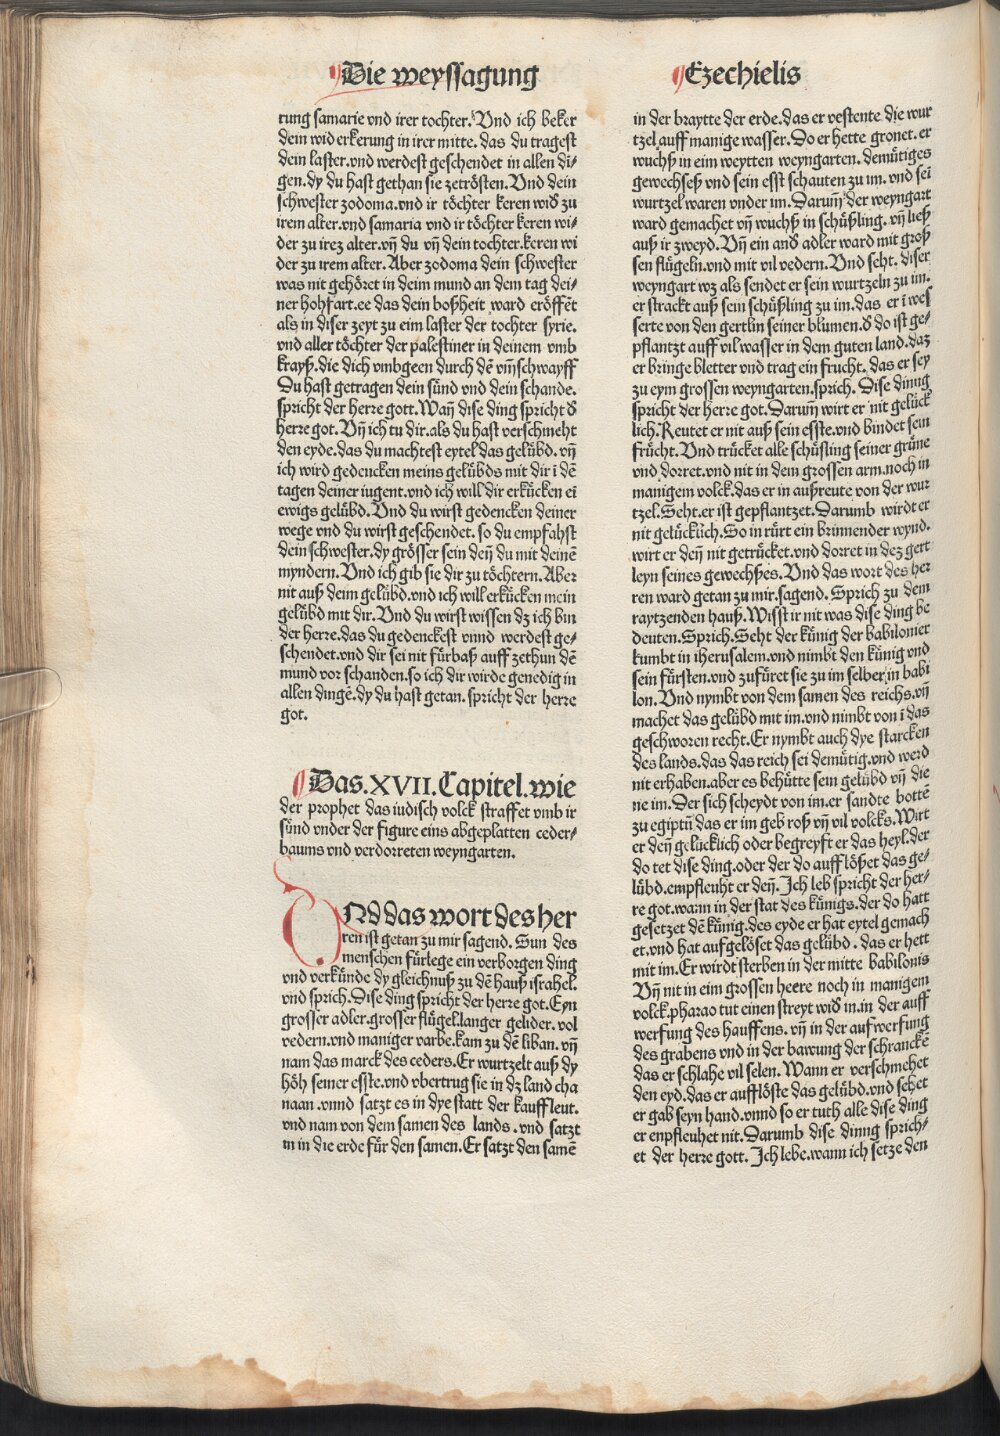 Die weyssagung
Ezechielis
rung samarie vnd irer tochter. Vnd ich beker
dein wid erkerung in irer mitte. das du tragest
dein laster. vnd werdest geschendet in allen di-
gen. dy du hast gethan sie zetrösten. Vnd dein
schwester zodoma. vnd ir töchter keren wid zu
irem alter. vnd samaria vnd ir töchter keren wi-
der zu irez alter. vñ du vñ dein tochter. keren wi
der zu irem alter. Aber zodoma dein schwester
was nit gehöret in deim mund an dem tag dei-
ner hohfart. ee das dein boßheit ward eröffēt
als in diser zeyt zu eim laster der tochter syrie.
vnd aller töchter der palestiner in deinem vmb
krayß. die dich vmbgeen durch dē vm̄schwayff
Du hast getragen dein sünd vnd dein schande.
spricht der herre gott. Wañ dise ding spricht d
herre got. Vñ ich tu dir. als du hast verschmeht
den eyde. das du machtest eytel das gelübd. vñ
ich wird gedencken meins gelübds mit dir ī dē
tagen deiner iugent. vnd ich will dir erkücken ei
ewigs gelübd. Vnd du wirst gedencken deiner
wege vnd du wirst geschendet. so du empfahst
dein schwester. dy grösser sein deñ du mit deinē
myndern. Vnd ich gib sie dir zu töchtern. Aber
nit auß deim gelübd. vnd ich will erkücken mein
gelübd mit dir. Vnd du wirst wissen dz ich bin
der herre. das du gedenckest vnnd werdest ge-
schendet. vnd dir sei nit fürbaß auff zethun dē
mund vor schanden. so ich dir wirde genedig in
allen dingē. dy du hast getan. spricht der herre
got.
Das. XVII. Capitel. wie
der prophet das iudisch volck straffet vmb ir
sünd vnder der figure eins abgeplatten ceder-
baums vnd verdorreten weyngarten.
Vnd das wort des her
ren ist getan zu mir sagend. Sun des
menschen fürlege ein verborgen ding
vnd verkünde dy gleichnuß zu dē hauß israhel.
vnd sprich. Dise ding spricht der herre got. Eyn
grosser adler. grosser flügel. langer gelider. vol
vedern. vnd maniger varbe. kam zu dē liban. vñ
nam das marck des ceders. Er wurtzelt auß dy
höh seiner esste. vnd vbertrug sie in dz land cha
naan. vnnd satzt es in dye statt der kauffleut.
vnd nam von dem samen des lands. vnd satzt
in in die erde für den samen. Er satzt den samē
in der braytte der erde. das er vestente die wur
tzel auff manige wasser. Do er hette gronet. er
wuchß in eim weytten weyngarten. demütiges
gewechseß vnd sein esst schauten zu im. vnd sei
wurtzel waren vnder im. Darum̄ der weyngart
ward gemachet vñ wuchß in schüßling. vñ ließ
auß ir zweyd. Vñ ein and adler ward mit groß
sen flügeln. vnd mit vil vedern. Vnd seht. diser
weyngart wz als sendet er sein wurtzeln zu im.
er strackt auß sein schüßling zu im. das er ī wes
serte von den gertlin seiner blumen. d do ist ge-
pflantzt auff vil wasser in dem guten land. daz
er bringe bletter vnd trag ein frucht. das er sey
zu eym grossen weyngarten. sprich. Dise dinng
spricht der herre got. Darum̄ wirt er nit gelück
lich. Reutet er nit auß sein esste. vnd bindet sein
frücht. Vnd trücket alle schüßling seiner grüne
vnd dorret. vnd nit in dem grossen arm. noch in
manigem volck. das er in außreute von der wur
tzel. Seht. er ist gepflantzet. Darumb wirdt er
nit gelücklich. So in rürt ein brinnender wynd.
wirt er deñ nit getrücket. vnd dorret in dez gert
leyn seines gewechßes. Vnd das wort des her
ren ward getan zu mir. sagend. Sprich zu dem
raytzenden hauß. Wisst ir nit was dise ding be
deuten. Sprich. Seht der künig der babilonier
kumbt in iherusalem. vnd nimbt den künig vnd
sein fürsten. vnd zufüret sie zu im selber in babi
lon. Vnd nymbt von dem samen des reichs. vñ
machet das gelübd mit im. vnd nimbt von ī das
geschworen recht. Er nymbt auch dye starcken
des lands. das das reich sei demütig. vnd werd
nit erhaben. aber es behütte sein gelübd vñ die
ne im. Der sich scheydt von im. er sandte bottē
zu egiptū das er im geb roß vñ vil volcks. Wirt
er deñ gelücklich oder begreyft er das heyl. der
do tet dise ding. oder der do aufflößet das ge-
lübd. empfleuht er deñ. Ich leb spricht der her-
re got. wann in der stat des künigs. der do hatt
gesetzet dē künig. des eyde er hat eytel gemach
et. vnd hat aufgelöset das gelübd. das er hett
mit im. Er wirdt sterben in der mitte babilonis
Vñ nit in eim grossen heere noch in manigem
volck. pharao tut einen streyt wid in. in der auff
werfung des hauffens. vñ in der aufwerfung
des grabens vnd in der bawung der schranckē
das er schlahe vil selen. Wann er verschmehet
den eyd. das er aufflößte das gelübd. vnd sehet
er gab seyn hand. vnnd so er tuth alle dise ding
er enpfleuhet nit. Darumb dise dinng sprich-
et der herre gott. Ich lebe. wann ich setze den